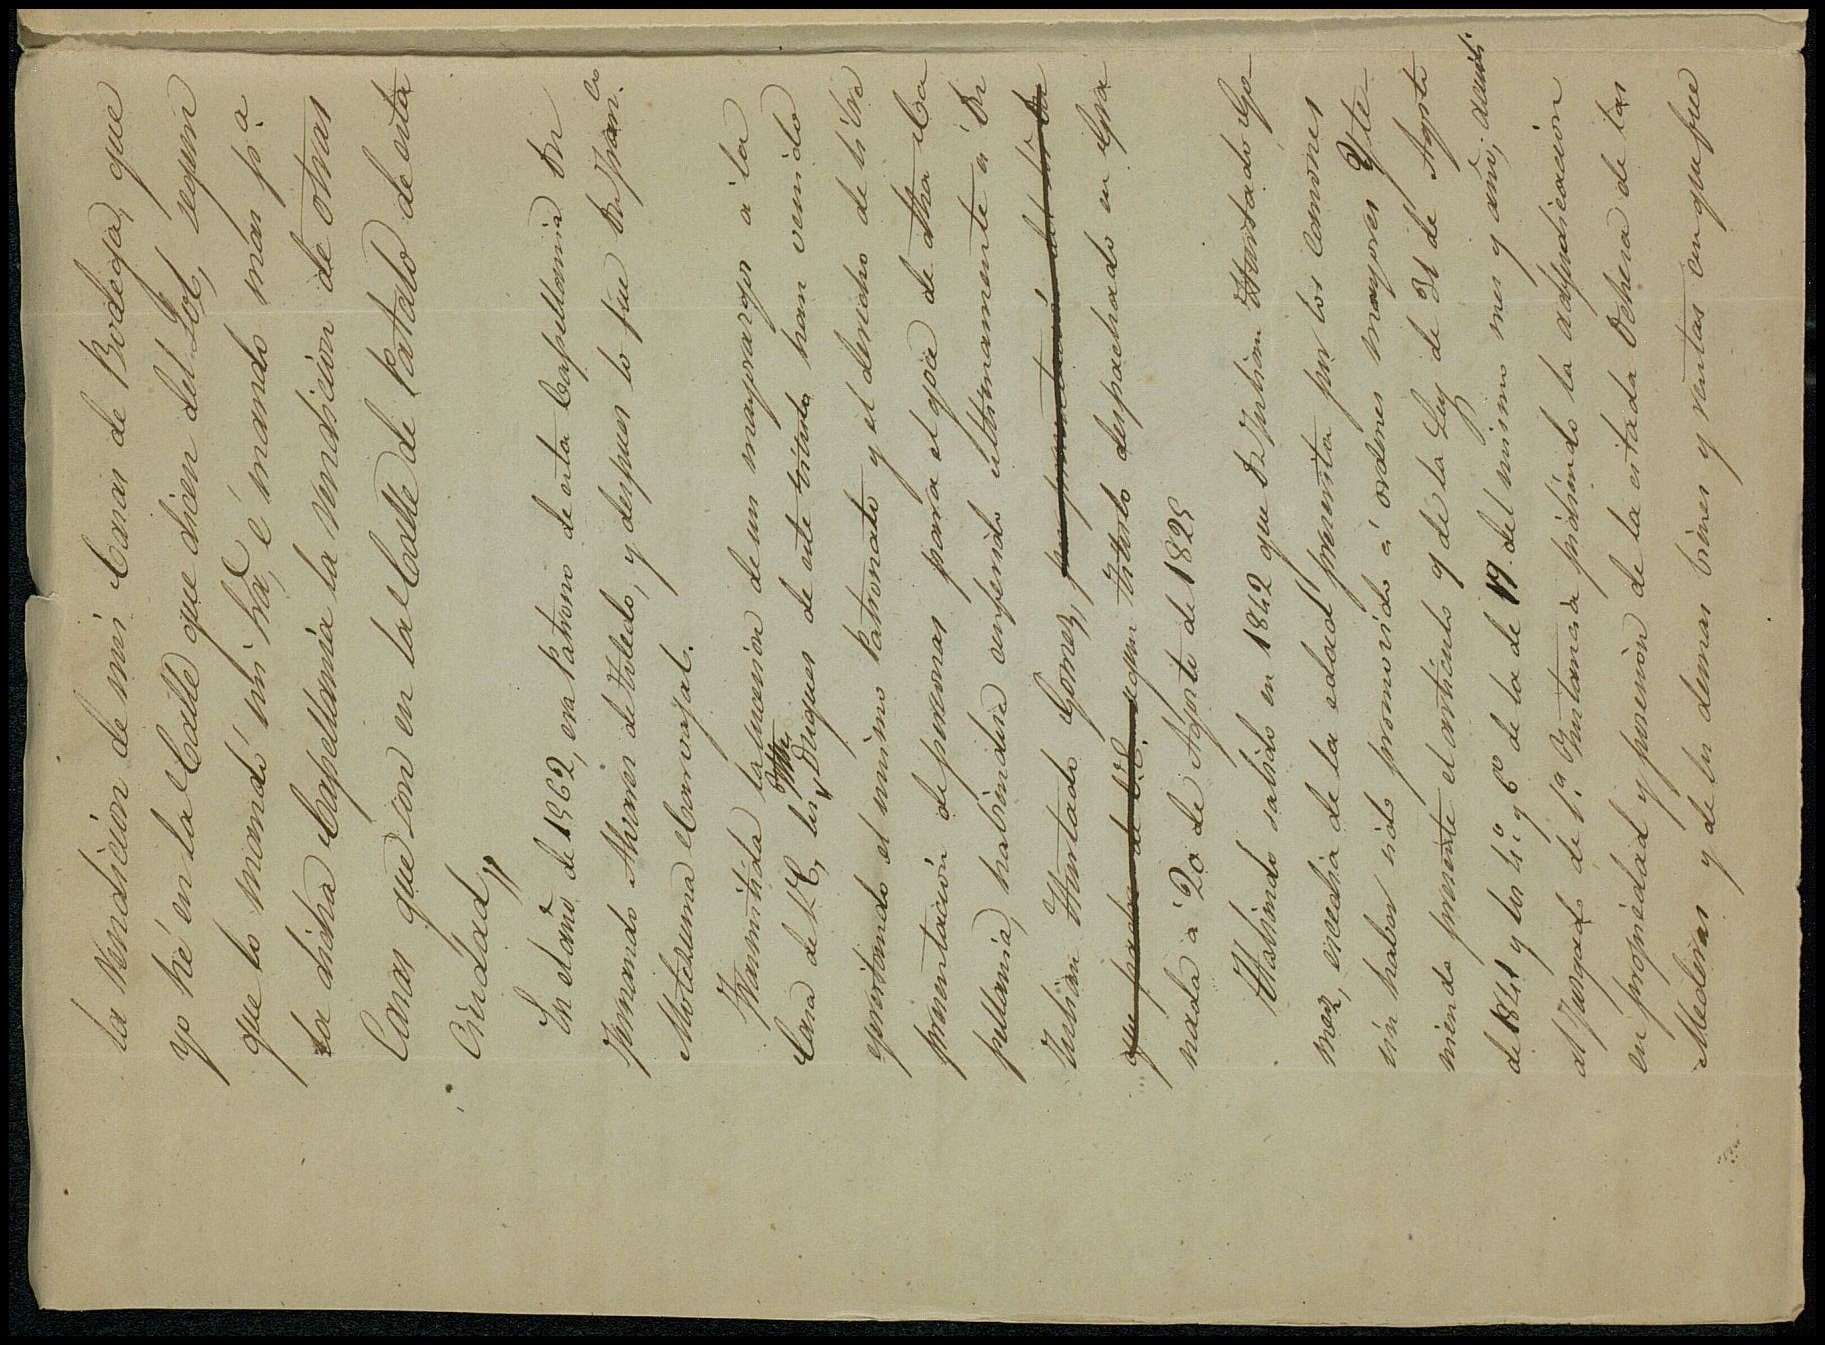 la rendicion de mis Casas de Bodega, que
yo hé en la Calle que dicen del Sol, segun
que lo mandó mi Sra, é mando mas pa
la dicha Capellania la rendicion de otras
Casas que son en la Calle de Patalo de esta
Ciudad,,
En el año de 1562, era Patrono de esta Capellania Dn
Fernando Alvares de Toledo, y despues lo fue Dn Juan
Motezuma Carvajal.
Trasmitida la sucesion de un mayorazgo a la
Casa de V.E, los Duques de este titulo han venido
egercitando el mismo Patronato y el derecho de libre
presentacion de personas para el goce de dha Ca
pellania, habiendose conferido ultimamente á Dn
Julian Hurtado Gomez, por presentacion del Sor Dn
que padre de V.E. segun titulo despachado en Gra
nada á 20 de Agosto de 1825
Habiendo salido en 1842 que Dn Julian Hurtado Go
mez, escedia de la edad prescrita por los Canones
sin haber sido promovido á ordenes mayores y te
niendo presente el articulo 9 de la Ley de 31 de Agosto
de 1841 y los 4º y 6º de la de 19 del mismo mes y año, acudi
al Juzgado de 1.a Instancia pidiendo la adjudicacion
en propiedad y posesion de la citada Dehesa de las
Mederas y de los demas bienes y rentas con que fue